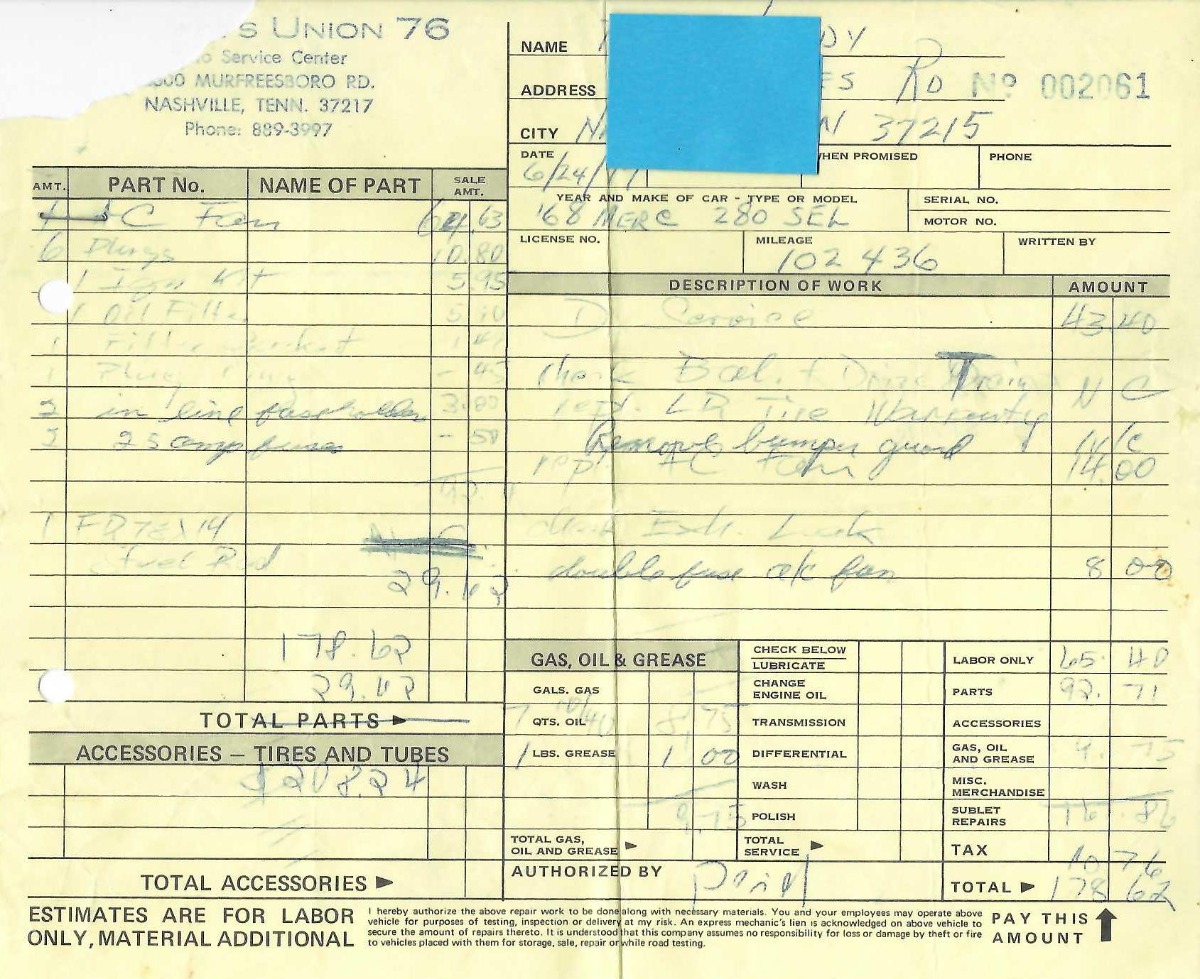 S UNION 76
Service Center
MURFREESBORO RD.
NASHVILLE, TENN. 37217
Phone: 889-3997
NAME DY
ADDRESS ES RD
No 002061
CITY N N 37215
DATE 6/24/77
WHEN PROMISED
PHONE
YEAR AND MAKE OF CAR - TYPE OR MODEL
'68 MERC 280 SEL
SERIAL NO.
MOTOR NO.
LICENSE NO.
MILEAGE
102 436
WRITTEN BY
AMT. PART No. NAME OF PART SALE AMT.
AC Fan 64.63
6 Plugs 10.80
1 Ign Kit 5.95
1 Oil Filter
1
1
2 in line fuseholder 3.80
2 25 amp fuses - 50
1 FR78X14
Fuel Rod
29.62
178.62
29.62
TOTAL PARTS
ACCESSORIES — TIRES AND TUBES
$208.24
TOTAL ACCESSORIES
DESCRIPTION OF WORK AMOUNT
Service 43.40
Check Bal. + N C
repl. LR Tire Warranty
Remove bumper guard N/C
repl AC Fan 14.00
check Exh. Leak
double fuse a/c fan 8 00
GAS, OIL & GREASE
GALS. GAS
7 QTS. OIL 10/40 8.75
1 LBS. GREASE 1 00
9.75
TOTAL GAS, OIL AND GREASE
CHECK BELOW
LUBRICATE
CHANGE ENGINE OIL
TRANSMISSION
DIFFERENTIAL
WASH
POLISH
TOTAL SERVICE
LABOR ONLY 65.40
PARTS 92.71
ACCESSORIES
GAS, OIL AND GREASE 9.75
MISC. MERCHANDISE
SUBLET REPAIRS 167.86
TAX 10 76
TOTAL 178 62
AUTHORIZED BY
ESTIMATES ARE FOR LABOR
ONLY, MATERIAL ADDITIONAL
I hereby authorize the above repair work to be done along with necessary materials. You and your employees may operate above
vehicle for purposes of testing, inspection or delivery at my risk. An express mechanic's lien is acknowledged on above vehicle to
secure the amount of repairs thereto. It is understood that this company assumes no responsibility for loss or damage by theft or fire
to vehicles placed with them for storage, sale, repair or while road testing.
PAY THIS
AMOUNT